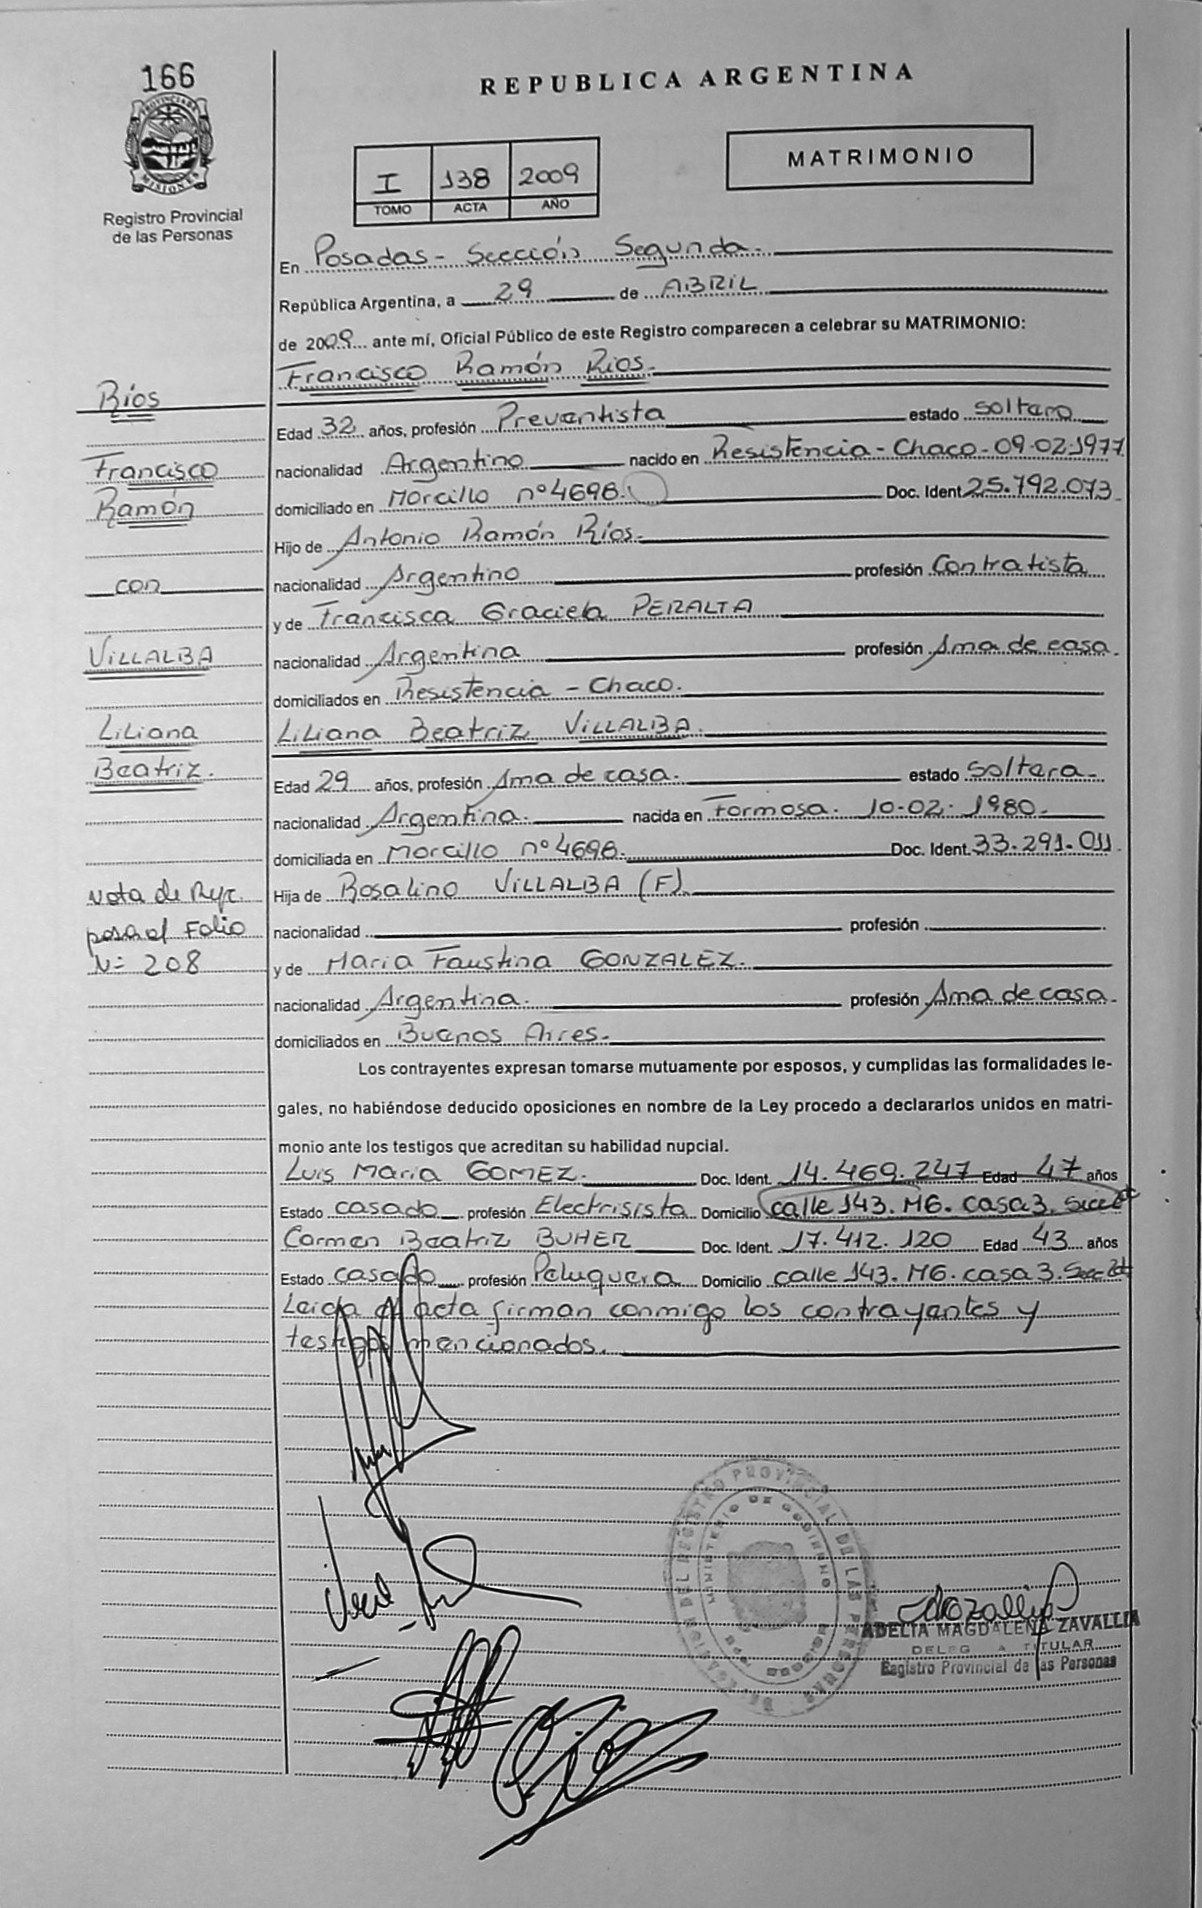 166
PROVINCIA DE
MISIONES
Registro Provincial
de las Personas
REPUBLICA ARGENTINA
I 138 2009
TOMO ACTA AÑO
MATRIMONIO
En Posadas - Sección Segunda.-
República Argentina, a 29 de ABRIL
de 2009 ante mí, Oficial Público de este Registro comparecen a celebrar su MATRIMONIO:
Francisco Ramón Rios.-
Ríos
Edad 32 años, profesión Preventista estado soltero
Francisco
nacionalidad Argentino nacido en Resistencia - Chaco - 09-02-1977
Ramón
domiciliado en Morcillo nº 4698. Doc. Ident. 25.792.073
Hijo de Antonio Ramón Ríos.-
con
nacionalidad Argentino profesión Contratista
y de Francisca Graciela PERALTA
VILLALBA
nacionalidad Argentina profesión Ama de casa.
domiciliados en Resistencia - Chaco.
Liliana
Liliana Beatriz VILLALBA.
Beatriz.
Edad 29 años, profesión Ama de casa. estado Soltera.-
nacionalidad Argentina. nacida en Formosa. 10-02-1980.-
domiciliada en Morcillo nº 4698. Doc. Ident. 33.291.011.
Nota de Ref.
Hija de Rosalino VILLALBA (F).
pasa al Folio
nacionalidad profesión
Nº 208
y de Maria Faustina GONZALEZ.
nacionalidad Argentina. profesión Ama de casa.
domiciliados en Buenos Aires.-
Los contrayentes expresan tomarse mutuamente por esposos, y cumplidas las formalidades le-
gales, no habiéndose deducido oposiciones en nombre de la Ley procedo a declararlos unidos en matri-
monio ante los testigos que acreditan su habilidad nupcial.
Luis Maria GOMEZ.- Doc. Ident. 14.469.247 Edad 47 años
Estado casado profesión Electrisista Domicilio calle 143. M6. casa 3. Secc 2da
Carmen Beatriz BUHER Doc. Ident. 17.412.120 Edad 43 años
Estado casado profesión Peluquera Domicilio calle 143. M6. casa 3. Secc 2da
Leida el acta firman conmigo los contrayentes y
testigos mencionados.
DELEGACION DEL REGISTRO PROVINCIAL DE LAS PERSONAS
MINISTERIO DE GOBIERNO
ADELIA MAGDALENA ZAVALLIA
DELEG A TITULAR
Registro Provincial de las Personas